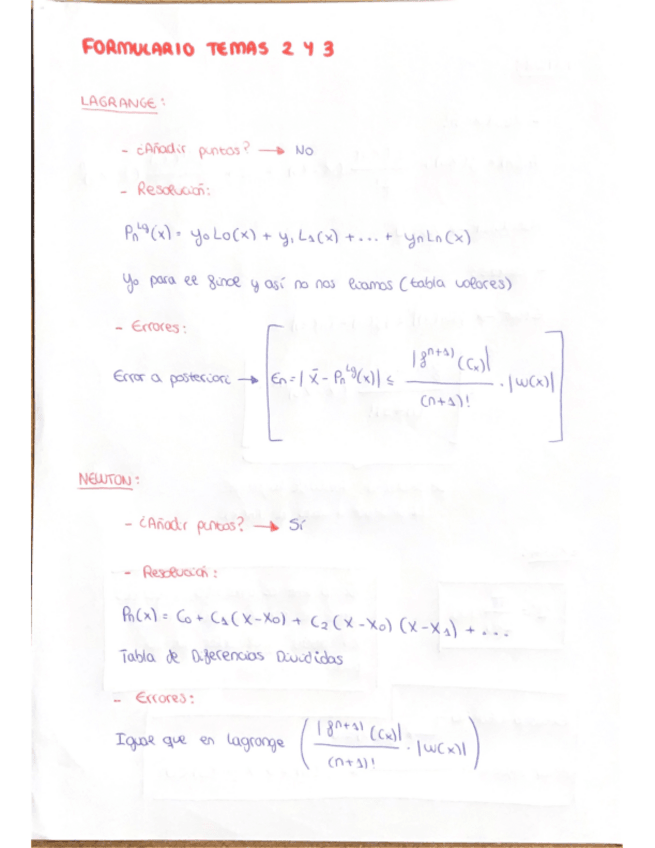 FORMULARIO TEMAS 2 Y 3
LAGRANGE:
- ¿Añadir puntos? → No
- Resolución:
Pn^Lg(x) = y0 L0(x) + y1 L1(x) + ... + yn Ln(x)
y0 para el final y así no nos liamos (tabla valores)
- Errores:
Error a posteriori → [ En = | x̄ - Pn^Lg(x) | ≤ |f^(n+1)(Cx)| / (n+1)! · |w(x)| ]
NEWTON:
- ¿Añadir puntos? → Sí
- Resolución:
Pn(x) = C0 + C1(x-x0) + C2(x-x0)(x-x1) + ...
Tabla de Diferencias Divididas
- Errores:
Igual que en lagrange ( |f^(n+1)(Cx)| / (n+1)! · |w(x)| )